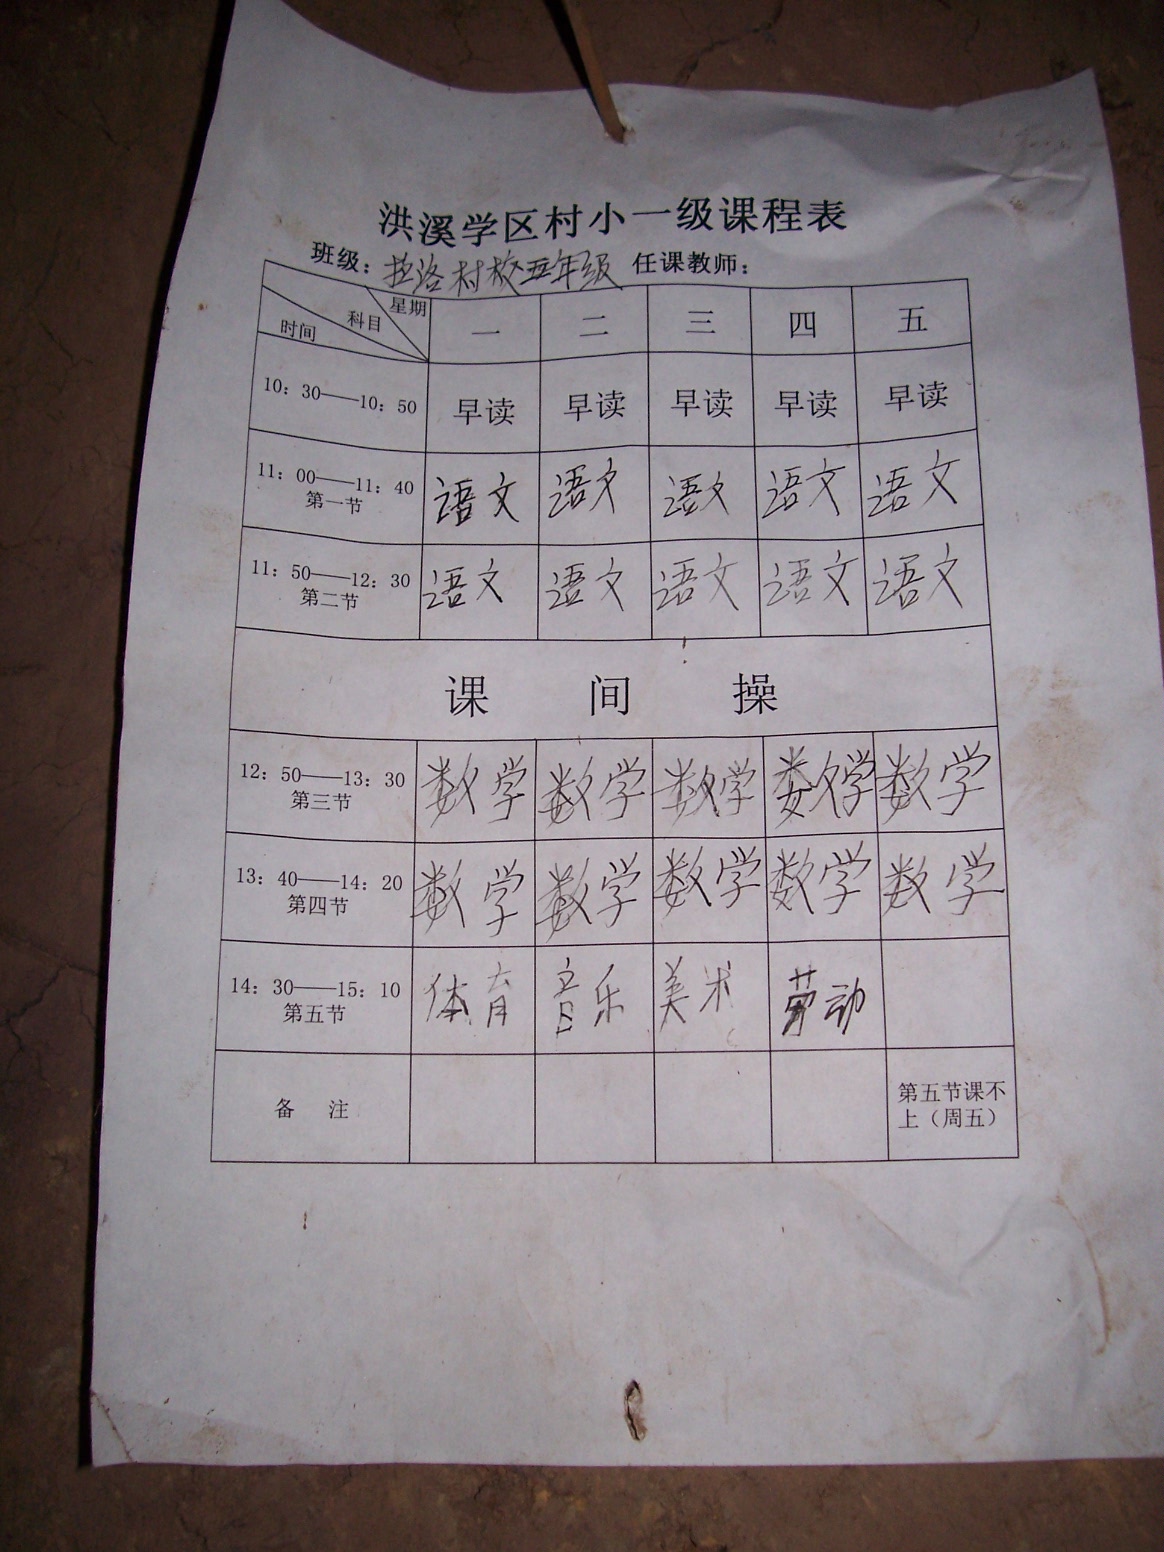 洪溪学区村小一级课程表
班级：拉洛村校五年级 任课教师：
星期
科目
时间
一 二 三 四 五
10：30——10：50 早读 早读 早读 早读 早读
11：00——11：40 语文 语文 语文 语文 语文
第一节
11：50——12：30 语文 语文 语文 语文 语文
第二节
课 间 操
12：50——13：30 数学 数学 数学 数学 数学
第三节
13：40——14：20 数学 数学 数学 数学 数学
第四节
14：30——15：10 体育 音乐 美术 劳动
第五节
备 注 第五节课不
上（周五）